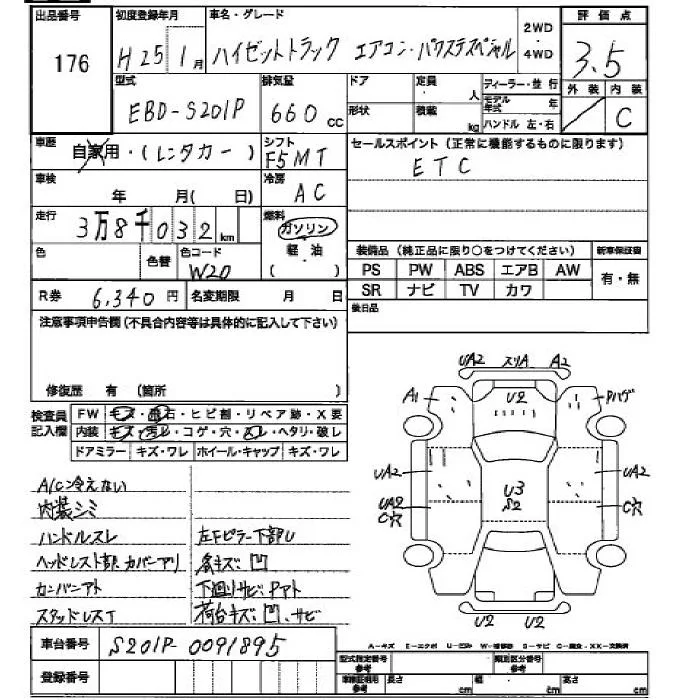 出品番号 初度登録年月 車名・グレード 2WD・4WD 評価点
176 H25 1月 ハイゼットトラック エアコン・パワステスペシャル 3.5
型式 排気量 ドア 定員 人 ディーラー・並行 外装 内装
EBD-S201P 660cc 形状 積載 kg モデル年式 年 ハンドル 左・右 C
車歴 自家用・(レンタカー) シフト F5MT セールスポイント(正常に機能するものに限ります)
ETC
車検 年 月(日) 冷房 AC
走行 3万8千032km 燃料 ガソリン
軽油
( )
色 色替 色コード W20
装備品(純正品に限り○をつけてください) 新車保証書
PS PW ABS エアB AW 有・無
SR ナビ TV カワ
R券 6,340円 名変期限 月 日
後日品
注意事項申告欄(不具合内容等は具体的に記入して下さい)
修復歴 有 (箇所 )
検査員記入欄 FW キズ・飛石・ヒビ割・リペア跡・X要
内装 キズ・汚レ・コゲ・穴・スレ・ヘタリ・破レ
ドアミラー キズ・ワレ ホイール・キャップ キズ・ワレ
A/C冷えない
内装シミ
ハンドルスレ 左Fピラー下部U
ヘッドレスト部 カバーアリ 各キズ凹
カンバンアト 下廻リサビ Pアト
スタッドレスT 荷台キズ凹、サビ
UA2 スリA A2
A1 U2 Pハゲ
UA2 UA2
UA2 U3 C穴
C穴 S2
U2 U2
車台番号 S201P-0091895
A-キズ E-エクボ U-凹み W-補修跡 S-サビ C-腐食・XX-交換済
登録番号
型式指定番号 参考 類別区分番号 参考
車検証明用 参考 長さ cm 幅 cm 高さ cm